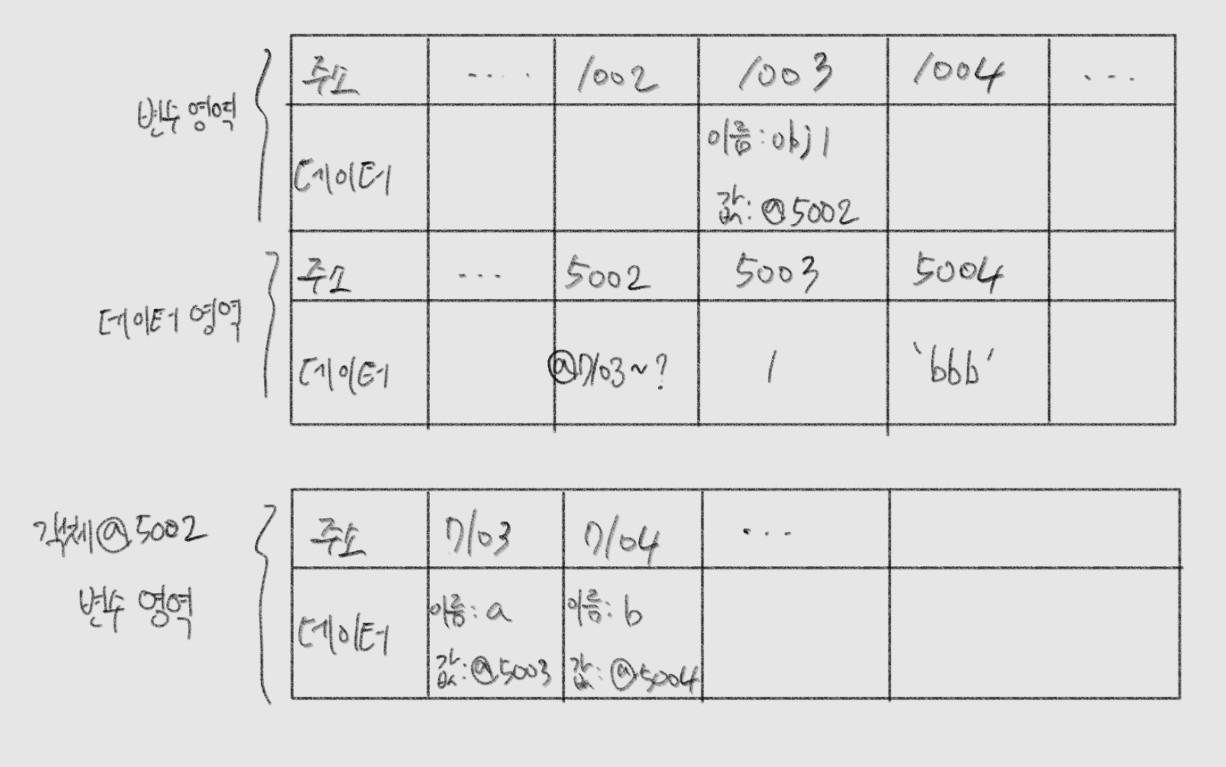 변수 영역
주소 .... 1002 1003 1004 ...
데이터
이름: obj1
값: @5002
데이터 영역
주소 ... 5002 5003 5004
데이터 @7103~? 1 'bbb'
객체@5002
변수 영역
주소 7103 7104 ...
데이터
이름: a 이름: b
값: @5003 값: @5004